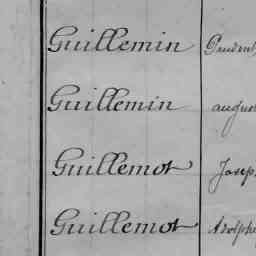 Guillemin Prudent
Guillemin august
Guillemot Josep
Guillemot Adolphe